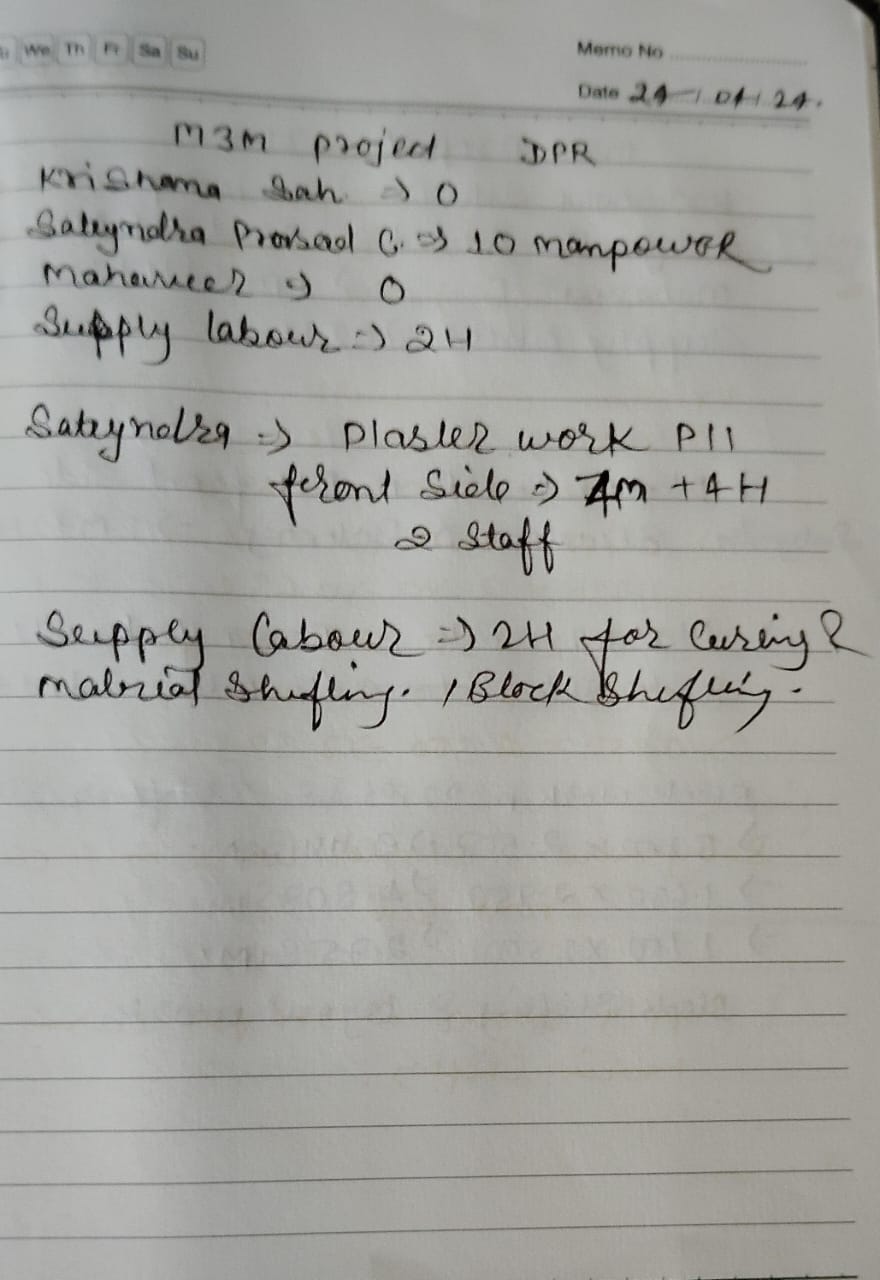 We Th Fr Sa Su
Memo No
Date 24/04/24.
M3M project DPR
Krishana Sah => 0
Sateyndra Prasad G. => 10 manpower
Mahaveer => 0
Supply labour => 2H
Sateyndra => Plaster work P11
front Side => 4M + 4H
2 Staff
Supply Labour => 2H for Cureing &
matrial Shifting. / Block Shifting.